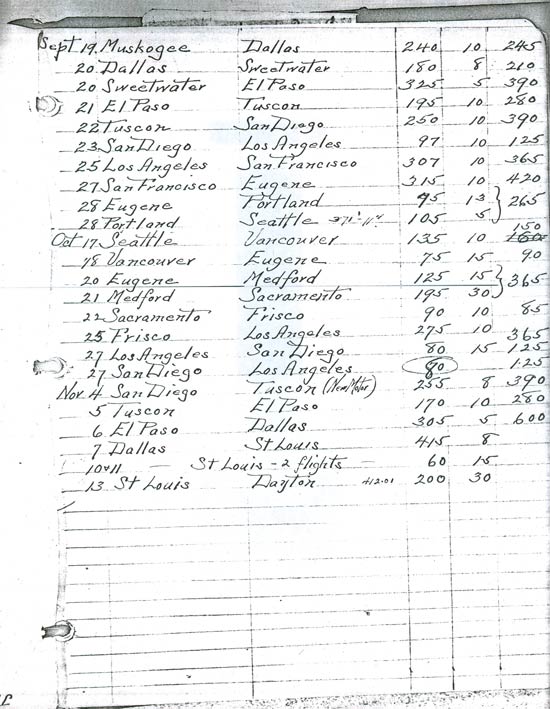 Sept 19. Muskogee Dallas 240 10 245
20 Dallas Sweetwater 180 8 210
20 Sweetwater El Paso 325 5 390
21 El Paso Tuscon 195 10 280
22 Tuscon San Diego 250 10 390
23 San Diego Los Angeles 97 10 125
25 Los Angeles San Francisco 307 10 365
27 San Francisco Eugene 315 10 420
28 Eugene Portland 95 13 } 265
28 Portland Seattle 105 5
Oct 17 Seattle Vancouver 135 10 150
18 Vancouver Eugene 75 15 90
20 Eugene Medford 125 15 } 365
21 Medford Sacramento 195 30
22 Sacramento Frisco 90 10 85
25 Frisco Los Angeles 275 10 365
27 Los Angeles San Diego 80 15 125
27 San Diego Los Angeles 80 125
Nov. 4 San Diego Tuscon (New Motor) 255 8 390
5 Tuscon El Paso 170 10 280
6 El Paso Dallas 305 5 600
7 Dallas St Louis 415 8
10+11 — St Louis - 2 flights — 60 15
13 St Louis Dayton 412.01 200 30